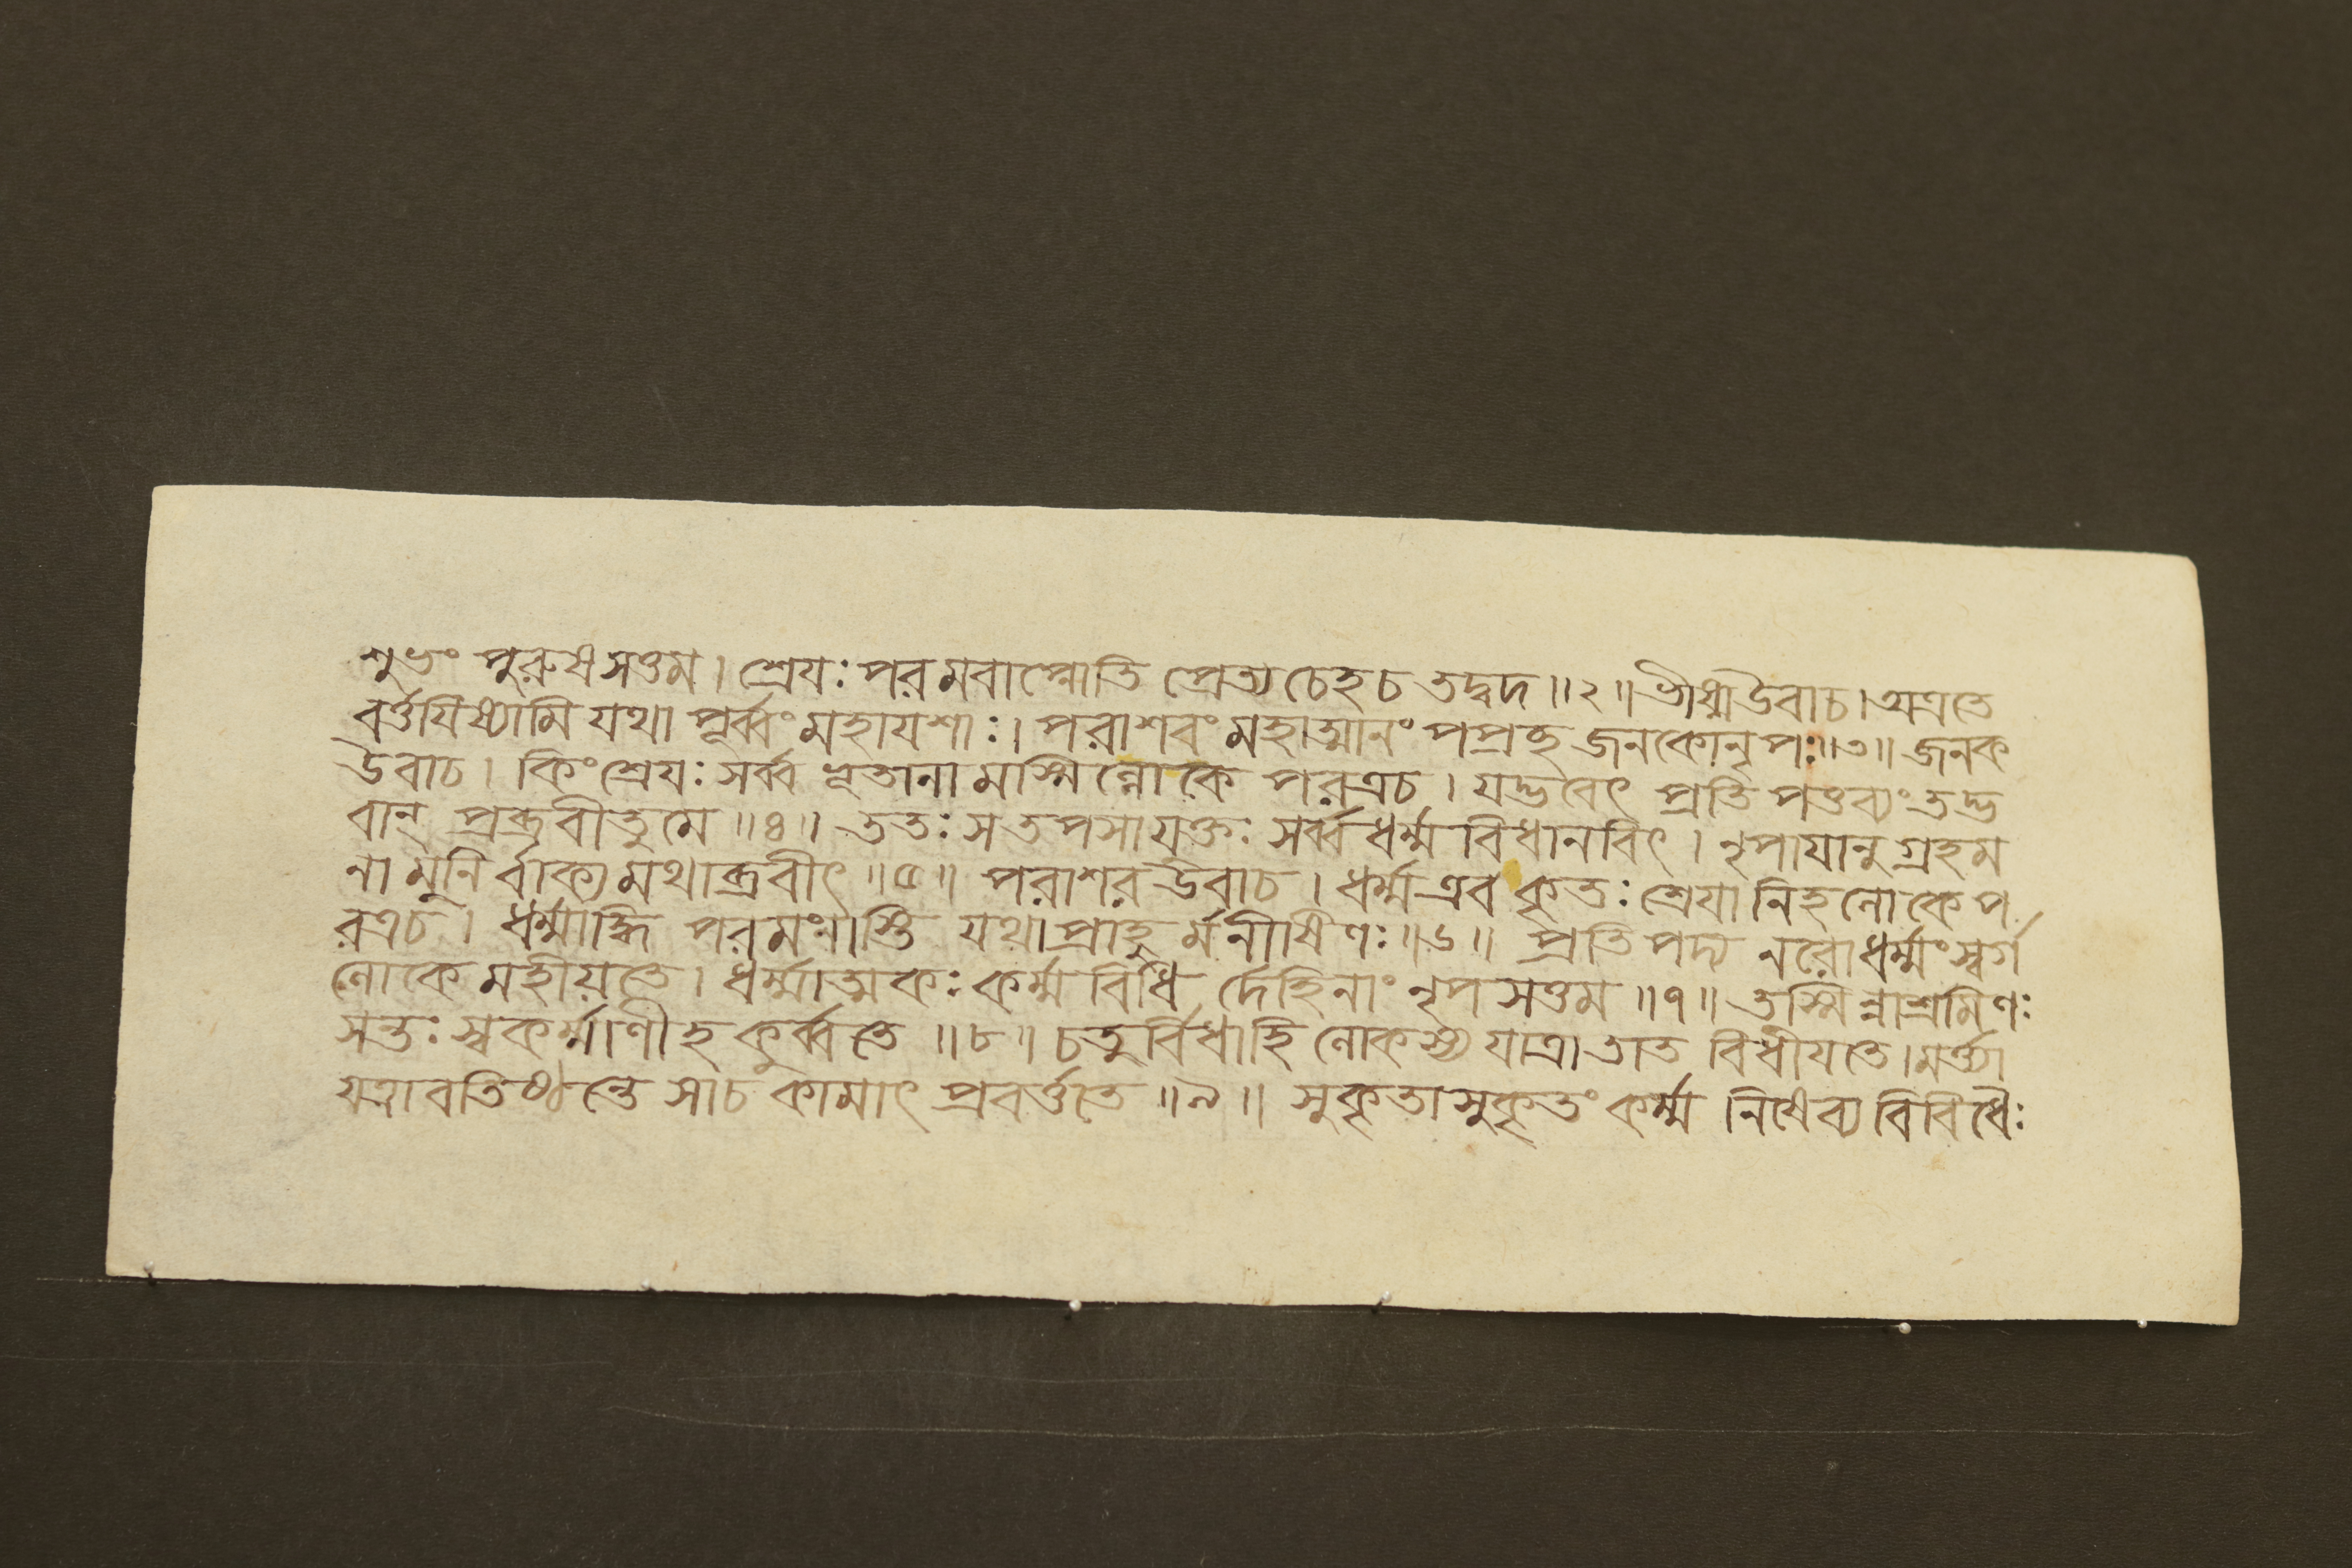 শুভং পুরুষসত্তম। শ্রেযঃ পরমবাপ্নোতি প্রেত্য চেহ চ তদ্বদ॥২॥ ভীষ্মউবাচ। অত্রতে
বর্ত্তযিষ্যামি যথা পূর্ব্বং মহাযশাঃ। পরাশরং মহাত্মানং পপ্রচ্ছ জনকোনৃপঃ॥৩॥ জনক
উবাচ। কিং শ্রেযঃ সর্ব্ব ভূতানা মস্মিন্লোকে পরত্রচ। যদ্ভবেৎ প্রতি পত্তব্যং তদ্ভ
বান্ প্রব্রবীতুমে॥৪॥ ততঃ স তপসা যুক্তঃ সর্ব্বধর্ম্ম বিধানবিৎ। নৃপাযানুগ্রহম
না মুনির্বাক্য মথাব্রবীৎ॥৫॥ পরাশর উবাচ। ধর্ম্মএব কৃতঃ শ্রেযা নিহলোকে প
রত্রচ। ধর্ম্মাদ্ধি পরমং নাস্তি যথা প্রাহু র্মনীষিণঃ॥৬॥ প্রতিপদ্য নরোধর্ম্মং স্বর্গ
লোকে মহীয়তে। ধর্ম্মাত্মকঃ কর্ম্ম বিধি র্দেহিনাং নৃপসত্তম॥৭॥ তস্মিন্নাশ্রমিণঃ
সন্তঃ স্বকর্ম্মাণীহ কুর্ব্বতে॥৮॥ চতুর্বিধাহি লোকস্য যাত্রা তাত বিধীযতে। মর্ত্ত্যা
যত্রাবতিষ্ঠন্তে সাচ কামাৎ প্রবর্ত্ততে॥৯॥ সুকৃতাসুকৃতং কর্ম্ম নিষেব্য বিবিধৈঃ